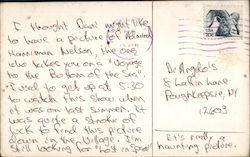 I thought Dear might like
to have a picture of Admiral
Harriman Nelson, the one
who takes you on a "Voyage
to the Bottom of the Sea".
I used to get up at 5:30
to watch this show when
it was on last summer. It
was quite a stroke of
luck to find this picture
down in the Village. I'm
still looking for "Lost in Space"
DeAngelo's
8 Larkin Lane
Poughkeepsie, NY
12603
It's really a
haunting picture.